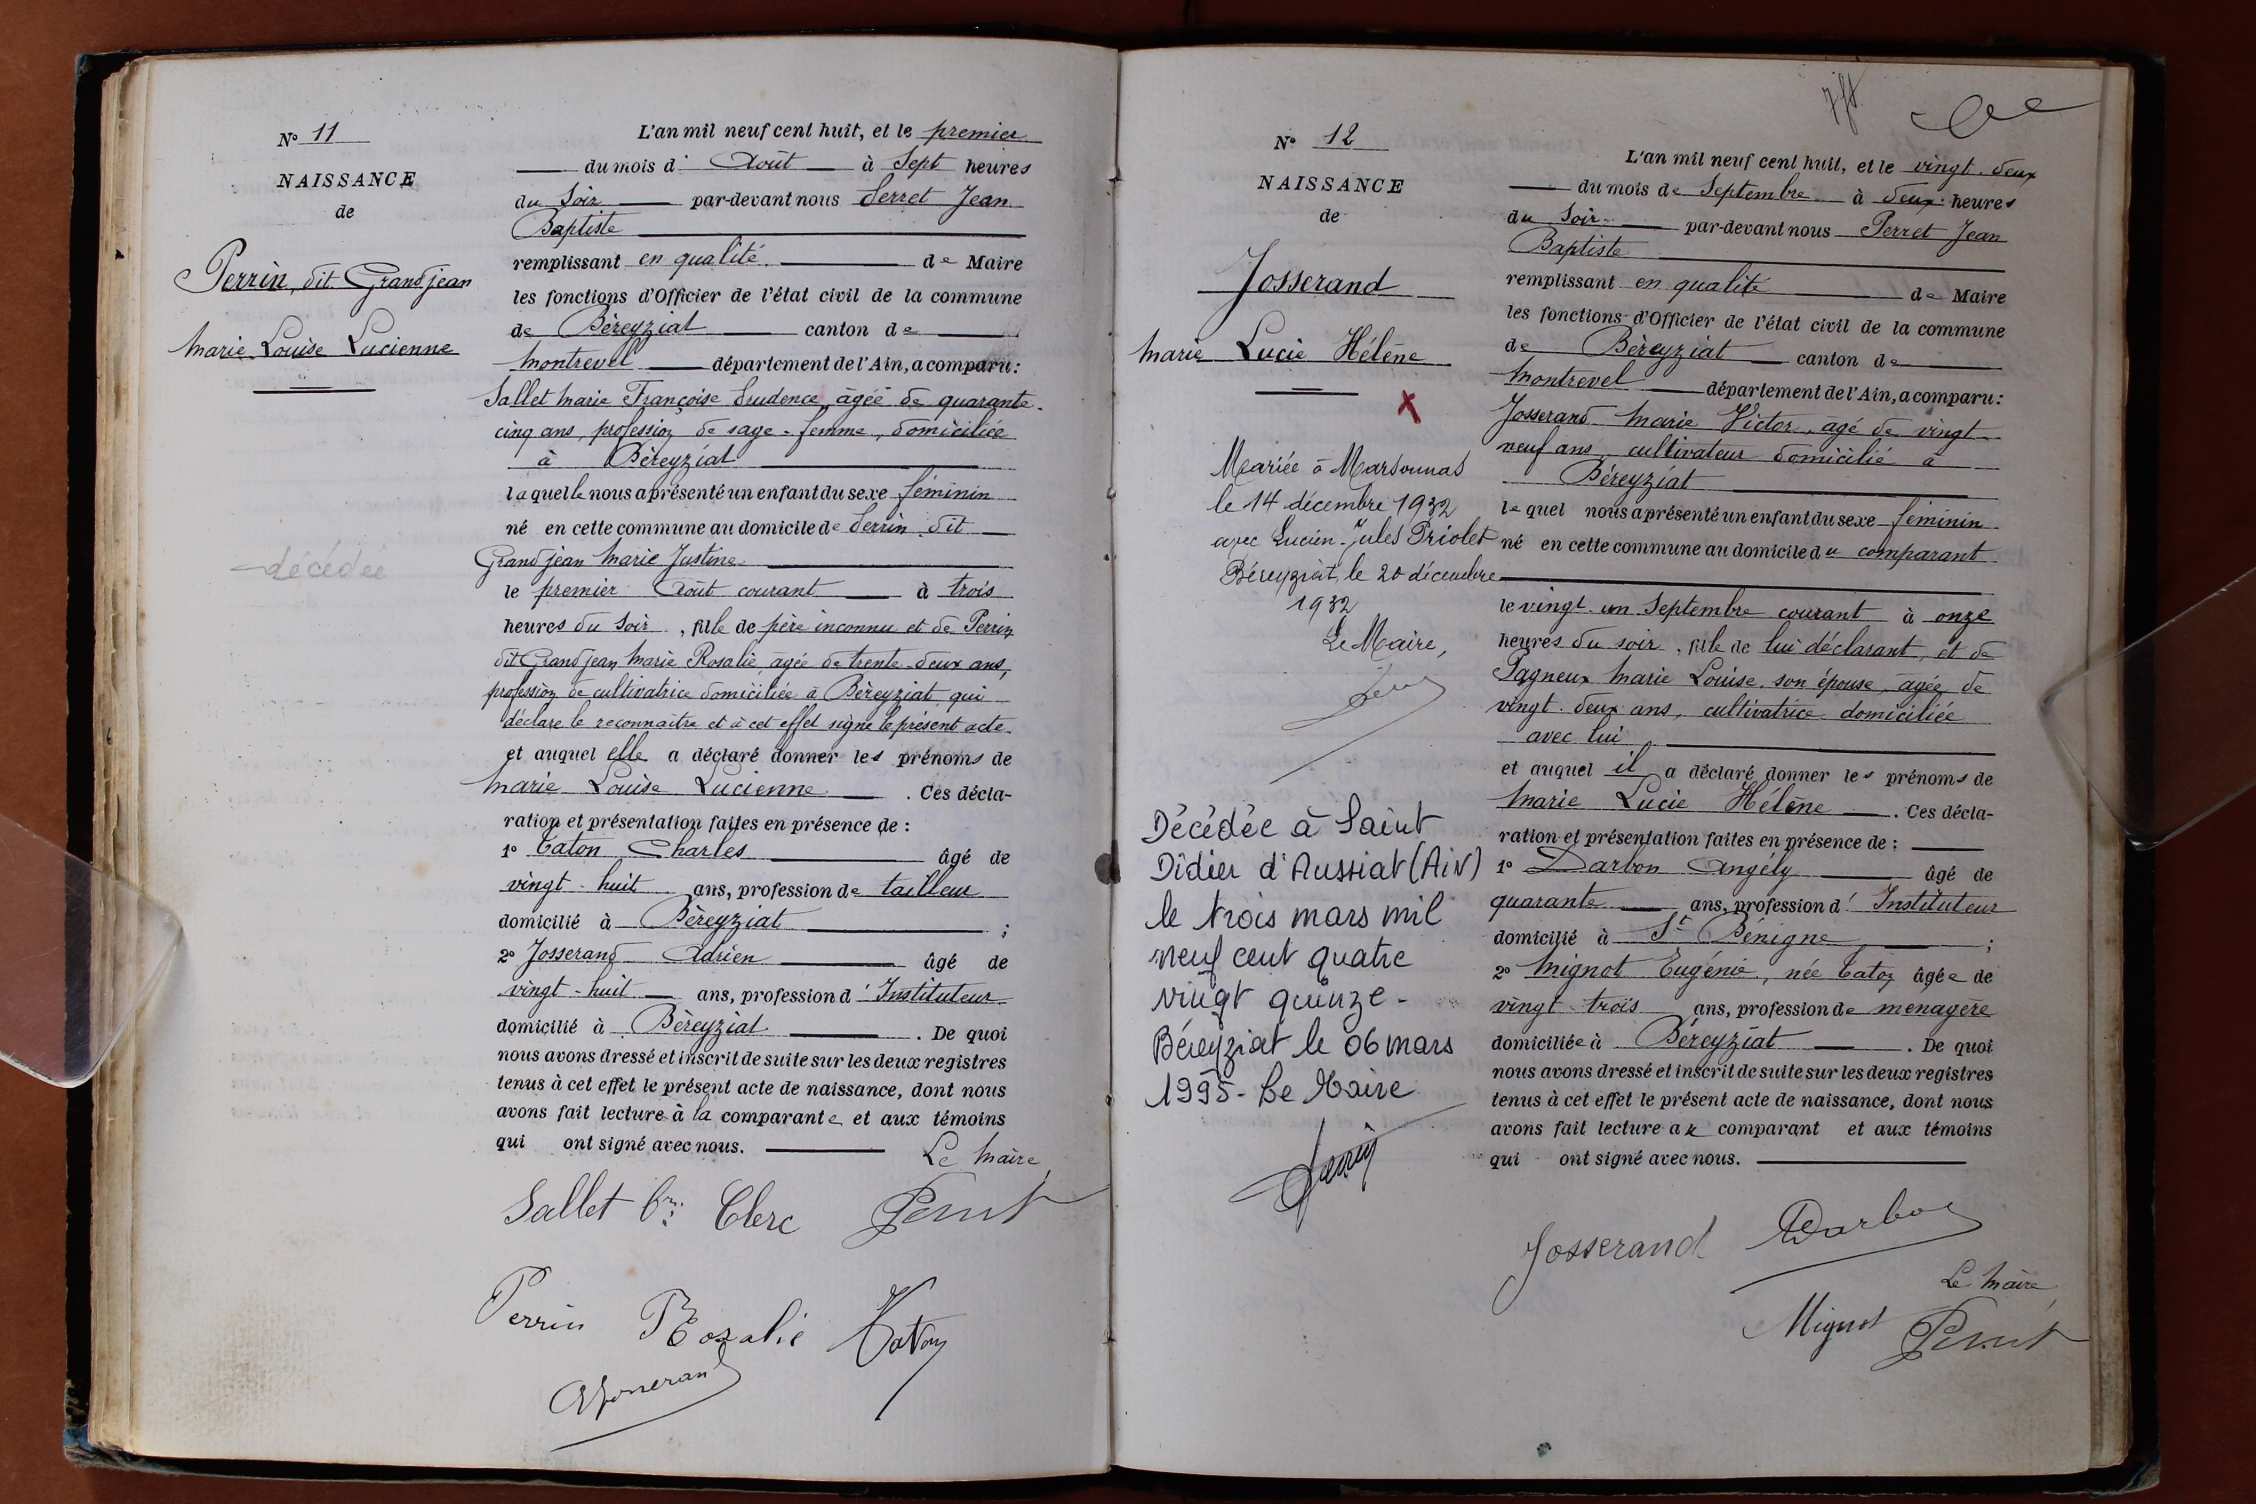 N° 11
NAISSANCE
de
Perrin, dit Grandjean
Marie Louise Lucienne
décédée
L'an mil neuf cent huit, et le premier
du mois d' Août à Sept heures
du Soir par-devant nous Perret Jean
Baptiste
remplissant en qualité de Maire
les fonctions d'Officier de l'état civil de la commune
de Béreyziat canton de
Montrevel département de l'Ain, a comparu :
Sallet Marie Françoise Prudence, âgée de quarante-
cinq ans, profession de sage-femme, domiciliée
à Béreyziat
laquelle nous a présenté un enfant du sexe féminin
né en cette commune au domicile de Perrin dit
Grandjean Marie Justine
le premier Août courant à trois
heures du Soir, fille de père inconnu et de Perrin
dit Grandjean Marie Rosalie, âgée de trente-deux ans,
profession de cultivatrice domiciliée à Béreyziat qui
déclare le reconnaître et à cet effet signe le présent acte.
et auquel elle a déclaré donner les prénoms de
Marie Louise Lucienne. Ces décla-
ration et présentation faites en présence de :
1° Caton Charles âgé de
vingt-huit ans, profession de tailleur
domicilié à Béreyziat ;
2° Josserand Adrien âgé de
vingt-huit ans, profession d'Instituteur
domicilié à Béreyziat. De quoi
nous avons dressé et inscrit de suite sur les deux registres
tenus à cet effet le présent acte de naissance, dont nous
avons fait lecture à la comparante et aux témoins
qui ont signé avec nous.
Le Maire,
Sallet Clerc Perret
Perrin Rosalie Caton
AJosserand
N° 12
NAISSANCE
de
Josserand
Marie Lucie Hélène
X
Mariée à Marsonnas
le 14 décembre 1932
avec Lucien-Jules Priolet
Béreyziat, le 20 décembre
1932
Le Maire,
Décédée à Saint
Didier d'Aussiat (Ain)
le trois mars mil
neuf cent quatre
vingt quinze-
Béreyziat le 06 mars
1995- Le Maire
L'an mil neuf cent huit, et le vingt-deux
du mois de Septembre à deux heures
du Soir par-devant nous Perret Jean
Baptiste
remplissant en qualité de Maire
les fonctions d'Officier de l'état civil de la commune
de Béreyziat canton de
Montrevel département de l'Ain, a comparu :
Josserand Marie Victor, âgé de vingt
neuf ans, cultivateur domicilié à
Béreyziat
lequel nous a présenté un enfant du sexe féminin
né en cette commune au domicile du comparant
le vingt-un Septembre courant à onze
heures du soir, fille de lui déclarant, et de
Pagneux Marie Louise, son épouse, âgée de
vingt-deux ans, cultivatrice domiciliée
avec lui
et auquel il a déclaré donner les prénoms de
Marie Lucie Hélène. Ces décla-
ration et présentation faites en présence de :
1° Darbon Angély âgé de
quarante ans, profession d'Instituteur
domicilié à St Bénigne ;
2° Mignot Eugénie, née Caton âgée de
vingt-trois ans, profession de ménagère
domiciliée à Béreyziat. De quoi
nous avons dressé et inscrit de suite sur les deux registres
tenus à cet effet le présent acte de naissance, dont nous
avons fait lecture au comparant et aux témoins
qui ont signé avec nous.
Josserand Darbon
Le Maire,
Mignot Perret